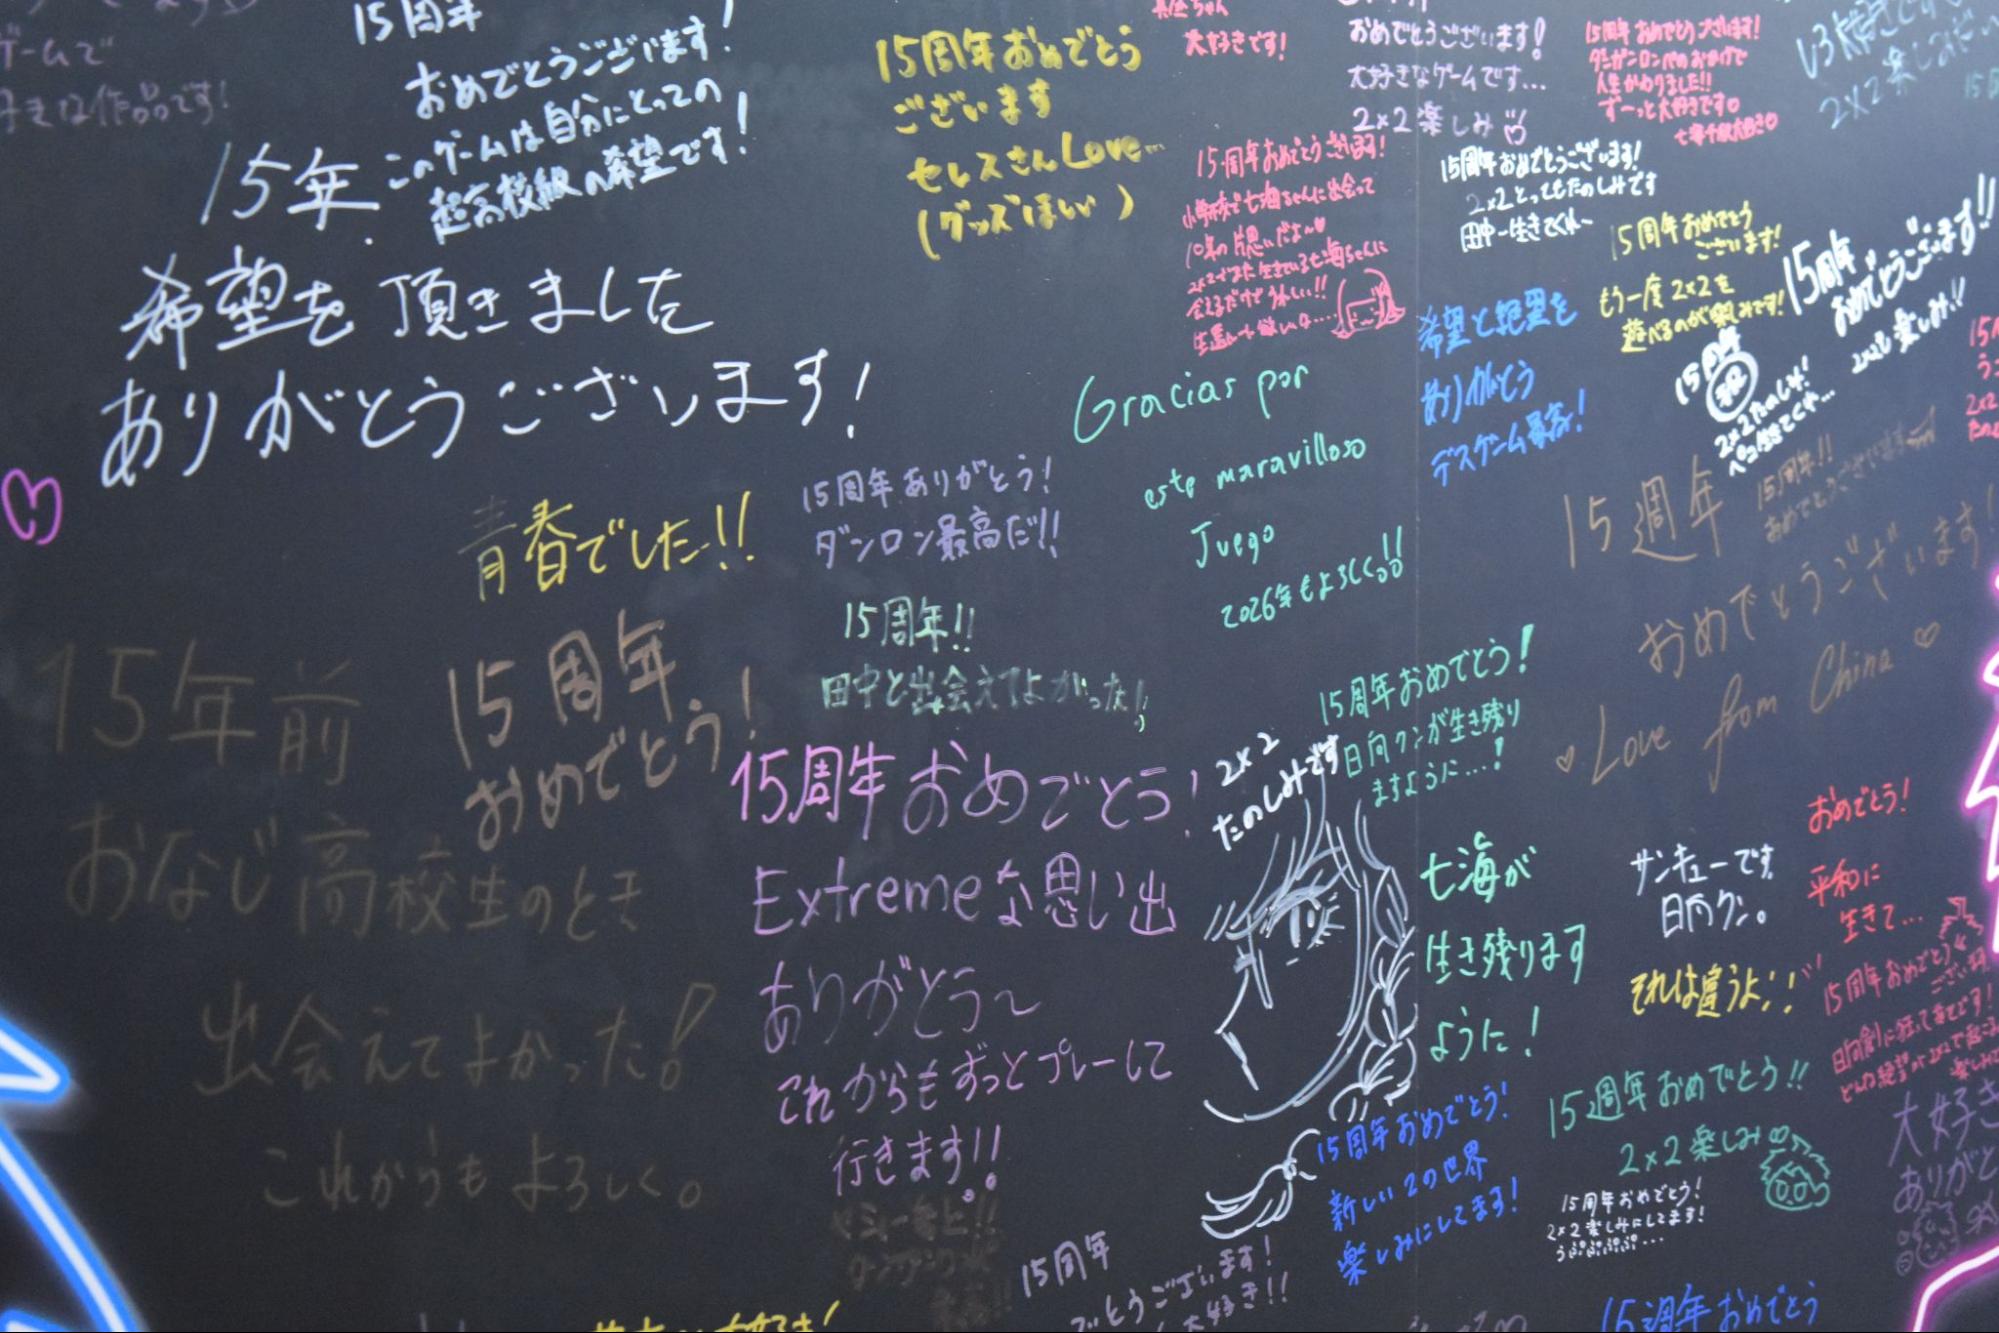 ゲームで
好きな作品です!
15周年
おめでとうございます!
このゲームは自分にとっての
超高校級の希望です!
15年
希望を頂きました
ありがとうございます!
15周年おめでとう
ございます
セレスさんLove…
(グッズほしい)
大好きです!
おめでとうございます!
大好きなゲームです…
2×2楽しみ
15周年おめでとうございます!
ダンガンロンパのおかげで
人生かわりました!!
ずーっと大好きです
七海千秋大好き♡
2×2楽しみ
15周年おめでとうございます!
小学校で七海ちゃんに出会って
10年の片思いだよ〜♡
2×2でまた生きている七海ちゃんに
会えるだけでうれしい!!
15周年おめでとうございます!
2×2とってもたのしみです
田中〜生きてくれ〜
15周年おめでとう
ございます!
もう一度2×2を
遊べるのが楽しみです!
15周年
おめでとうございます!!
2×2も楽しみ!!
15周年
祝
2×2たのしみ!
ペコ生きてくれ…
希望と絶望を
ありがとう
デスゲーム最高!
Gracias por
este maravilloso
Juego
2026年もよろしく!!
15周年ありがとう!
ダンロン最高だ!!
青春でした!!
15周年!!
おめでとうございます
15週年
おめでとうございます!
♡Love from China♡
15周年!!
田中と出会えてよかった!
15年前
おなじ高校生のとき
出会えてよかった!
これからもよろしく。
15周年
おめでとう!
15周年おめでとう!
Extremeな思い出
ありがとう～
これからもずっとプレーして
行きます!!
2×2
たのしみです
15周年おめでとう!
日向クンが生き残り
ますように…!
七海が
生き残ります
ように!
サンキューです
日向クン。
それは違うよ!!
おめでとう!
平和に
生きて…
15周年おめでとう
ございます
15週年おめでとう!!
2×2楽しみ
15周年おめでとう!
新しい2の世界
楽しみにしてます!
15周年おめでとう!
2×2楽しみにしてます!
うぷぷぷぷぷ…
大好き
ありがと
15周年
でとうございます!
大好き!!
15週年おめでとう